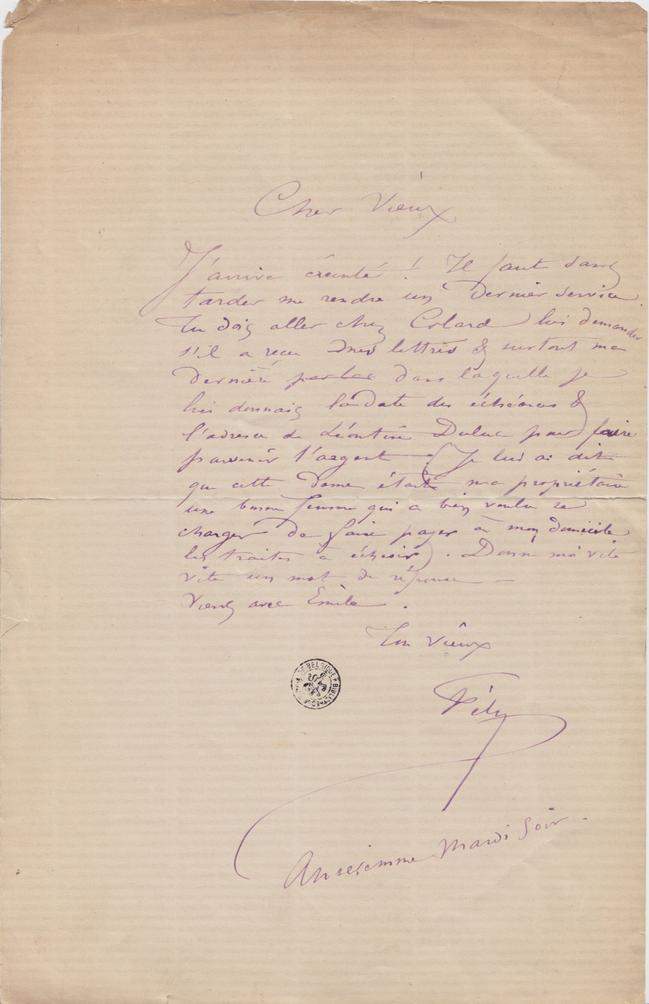 Cher Vieux
J'arrive éreinté ! Il faut sans
tarder me rendre un dernier service
Tu dois aller chez Colard lui demander
s'il a reçu mes lettres & surtout ma
dernière par laquelle dans laquelle je
lui donnais la date des échéances &
l'adresse de Léontine Duluc pour faire
parvenir l'argent (Je lui ai dit
que cette dame était ma propriétaire
une bonne femme qui a bien voulu se
charger de faire payer à mon domicile
les traites à échoir). Donne moi vite
vite un mot de réponse —
Viens avec Emile.
Ton vieux
Fély
Anseremme Mardi Soir.